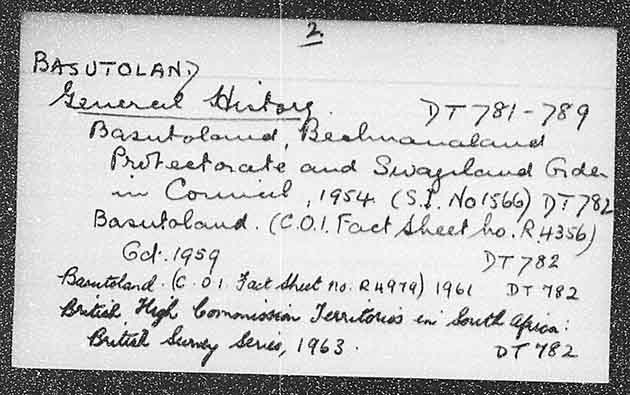 2.
BASUTOLAND
General History. DT 781-789
Basutoland, Bechuanaland
Protectorate and Swaziland Order
in Council, 1954. (S.I. No 1566) DT 782
Basutoland. (C.O.I. Fact Sheet no. R.4356)
Oct. 1959 DT 782
Basutoland. (C.O.I. Fact Sheet no. R4979) 1961 DT 782
British High Commission Territories in South Africa:
British Survey Series, 1963. DT 782